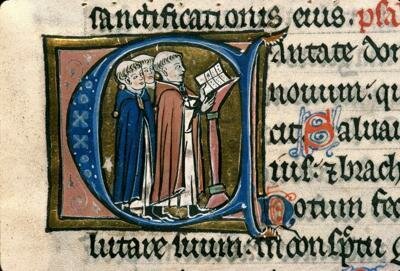 sanctificationis eius. psa
Cantate do
nouum: qu
cit Salua
uis: ⁊ brach
Notum fe
lutare suum: in conspctu g